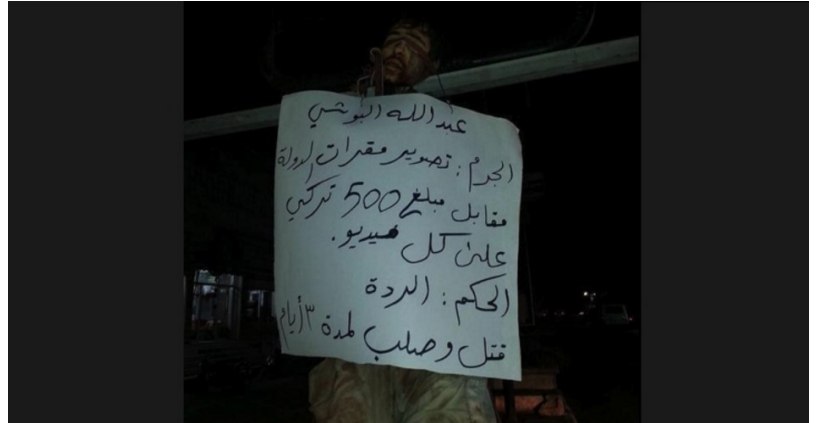 عبدالله البوشي
الجرم : تصوير مقرات الدولة
مقابل مبلغ 500 تركي
على كل فيديو .
الحكم : الردة
قتل وصلب لمدة ٣ أيام